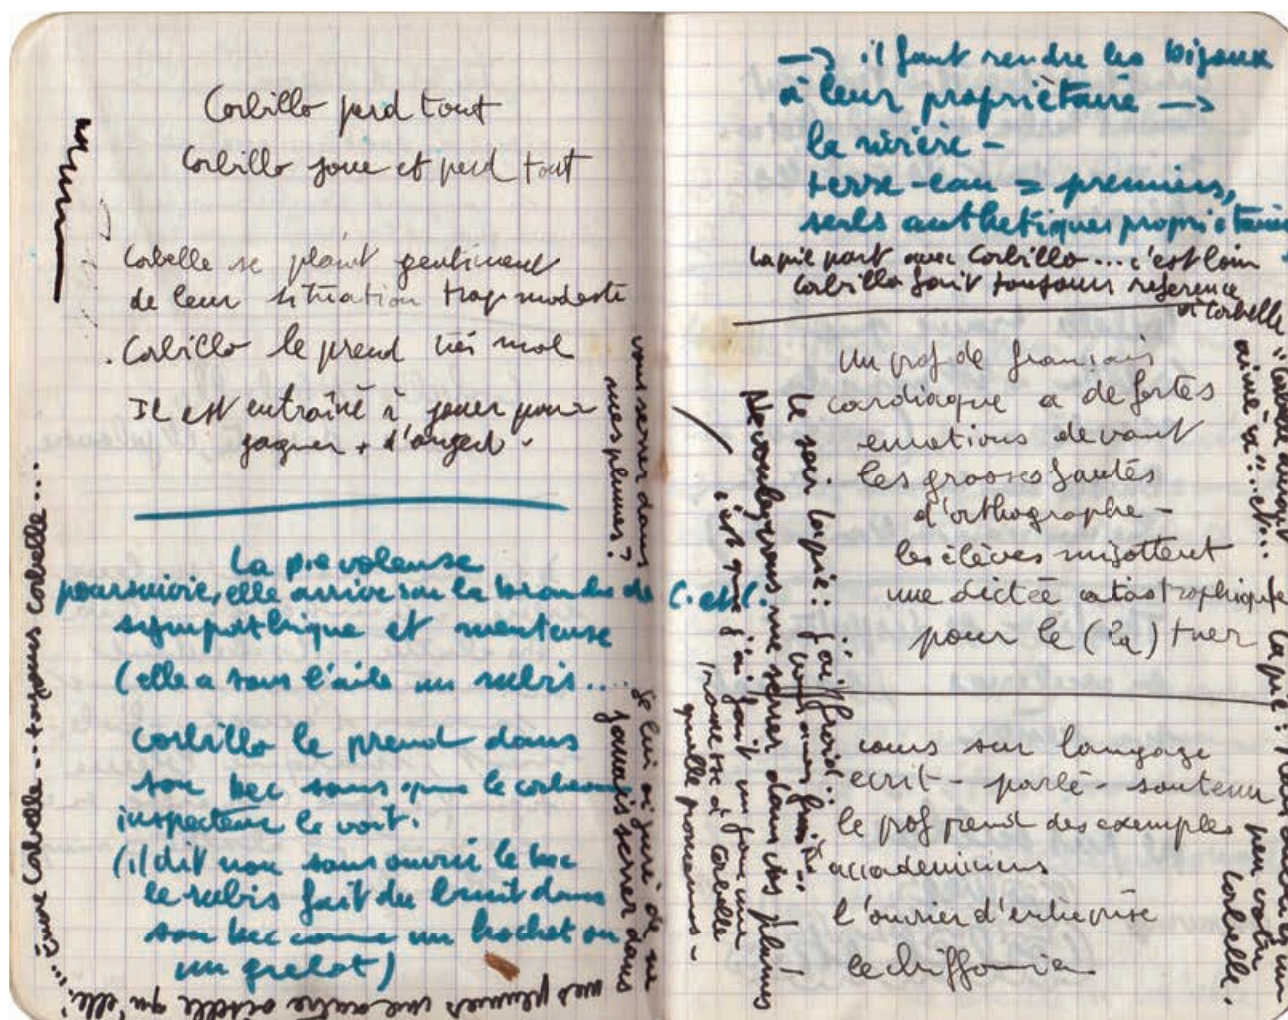 Corbillo perd tout
Corbillo joue et perd tout
Corbelle se plaint gentiment
de leur situation trop modeste
. Corbillo le prend très mal
Il est entraîné à jouer pour
gagner + d'argent.
La pie voleuse
poursuivie, elle arrive sur la branche de C. et C.
sympathique et menteuse
(elle a sous l'aile un rubis....
Corbillo le prend dans
son bec sans que le corbeau
inspecteur le voit.
(il dit non sans ouvrir le bec
le rubis fait du bruit dans
son bec comme un hochet ou
un grelot)
vous serrer dans
mes plumes?
je lui ai juré de ne
jamais serrer dans
mes plumes une autre oiselle qu'elle...
Corbelle... toujours Corbelle...
→ il faut rendre les bijoux
à leur propriétaire →
la rivière -
terre-eau = premiers,
seuls authetiques propriétaires
La pie part avec Corbillo... c'est loin
Corbillo fait toujours reference
à Corbelle
Un prof de français
cardiaque a de fortes
emotions devant
les grosses fautes
d'orthographe -
les élèves mijottent
une dictée catastrophique
pour le (la) tuer
cours sur langage
ecrit - parlé - soutenu
le prof prend des exemples
accademiciens
l'ouvrier d'entreprise
le chiffonnier
Le soir la pie: j'ai froid...
Ne voulez vous me serrer dans vos plumes!
c'est que j'ai fait un jour une
promesse -
à Corbelle
quelle
aimé ça"... et...
la pie:
un
peu votre
Corbelle.